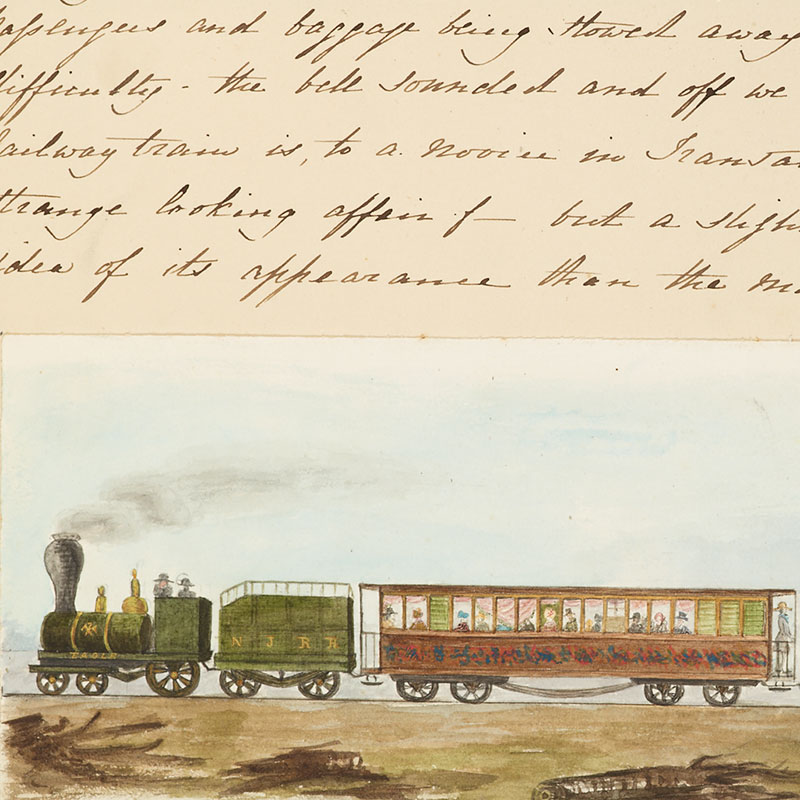 passengers and baggage being stowed away
difficulty - the bell sounded and off we
railway train is, to a novice in Transa
strange looking affair f— but a sligh
idea of its appearance than the
N J R R
EAGLE